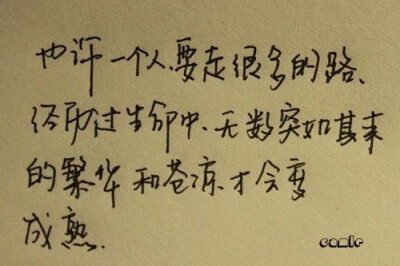 也许一个人、要走很多的路、
经历过生命中、无数突如其来
的繁华和苍凉.才会变
成熟.
eamlr